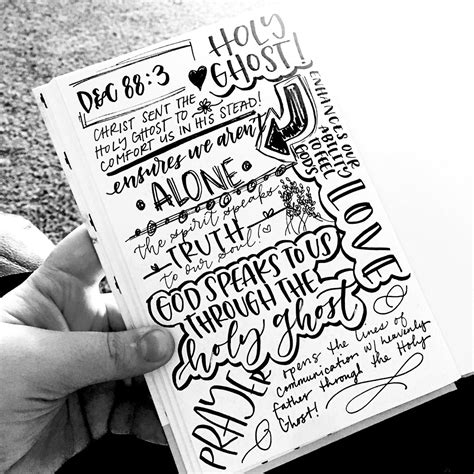 D&C 88:3
HOLY
GHOST!
CHRIST SENT THE
HOLY GHOST TO
COMFORT US IN HIS STEAD!
ensures we aren't
ALONE
the spirit speaks
TRUTH
to our soul!
ENHANCES OUR
ABILITY
TO FEEL
GOD'S
LOVE
GOD SPEAKS TO US
THROUGH THE
holy ghost
PRAYER
opens the lines of
communication w/ heavenly
father through the Holy
Ghost!